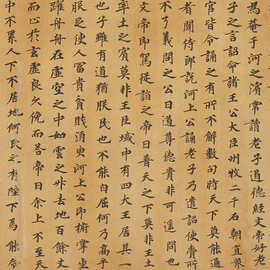 為菴于河之濱常讀老子道德經文帝好老
子之言詔命諸王公大臣州牧二千石朝直衆
官皆令誦之有所不解數句時天下莫能通
聞侍郎說河上公誦老子乃遣詔使賫所
不了義問之公曰道尊德貴非可遙問也
文帝即駕從詣之帝曰普天之下莫非王土
率土之賓莫非王臣域中有四大王居其一
也子雖有道猶朕民也不能自屈何乃高乎
朕足使人富貴貧賤須臾河上公即拊掌坐
躍冉冉在虛空之中如雲之升去地百餘丈
而止於玄虛良久俛而答帝曰余上不至天
中不累人下不居地何民之有陛下焉能令